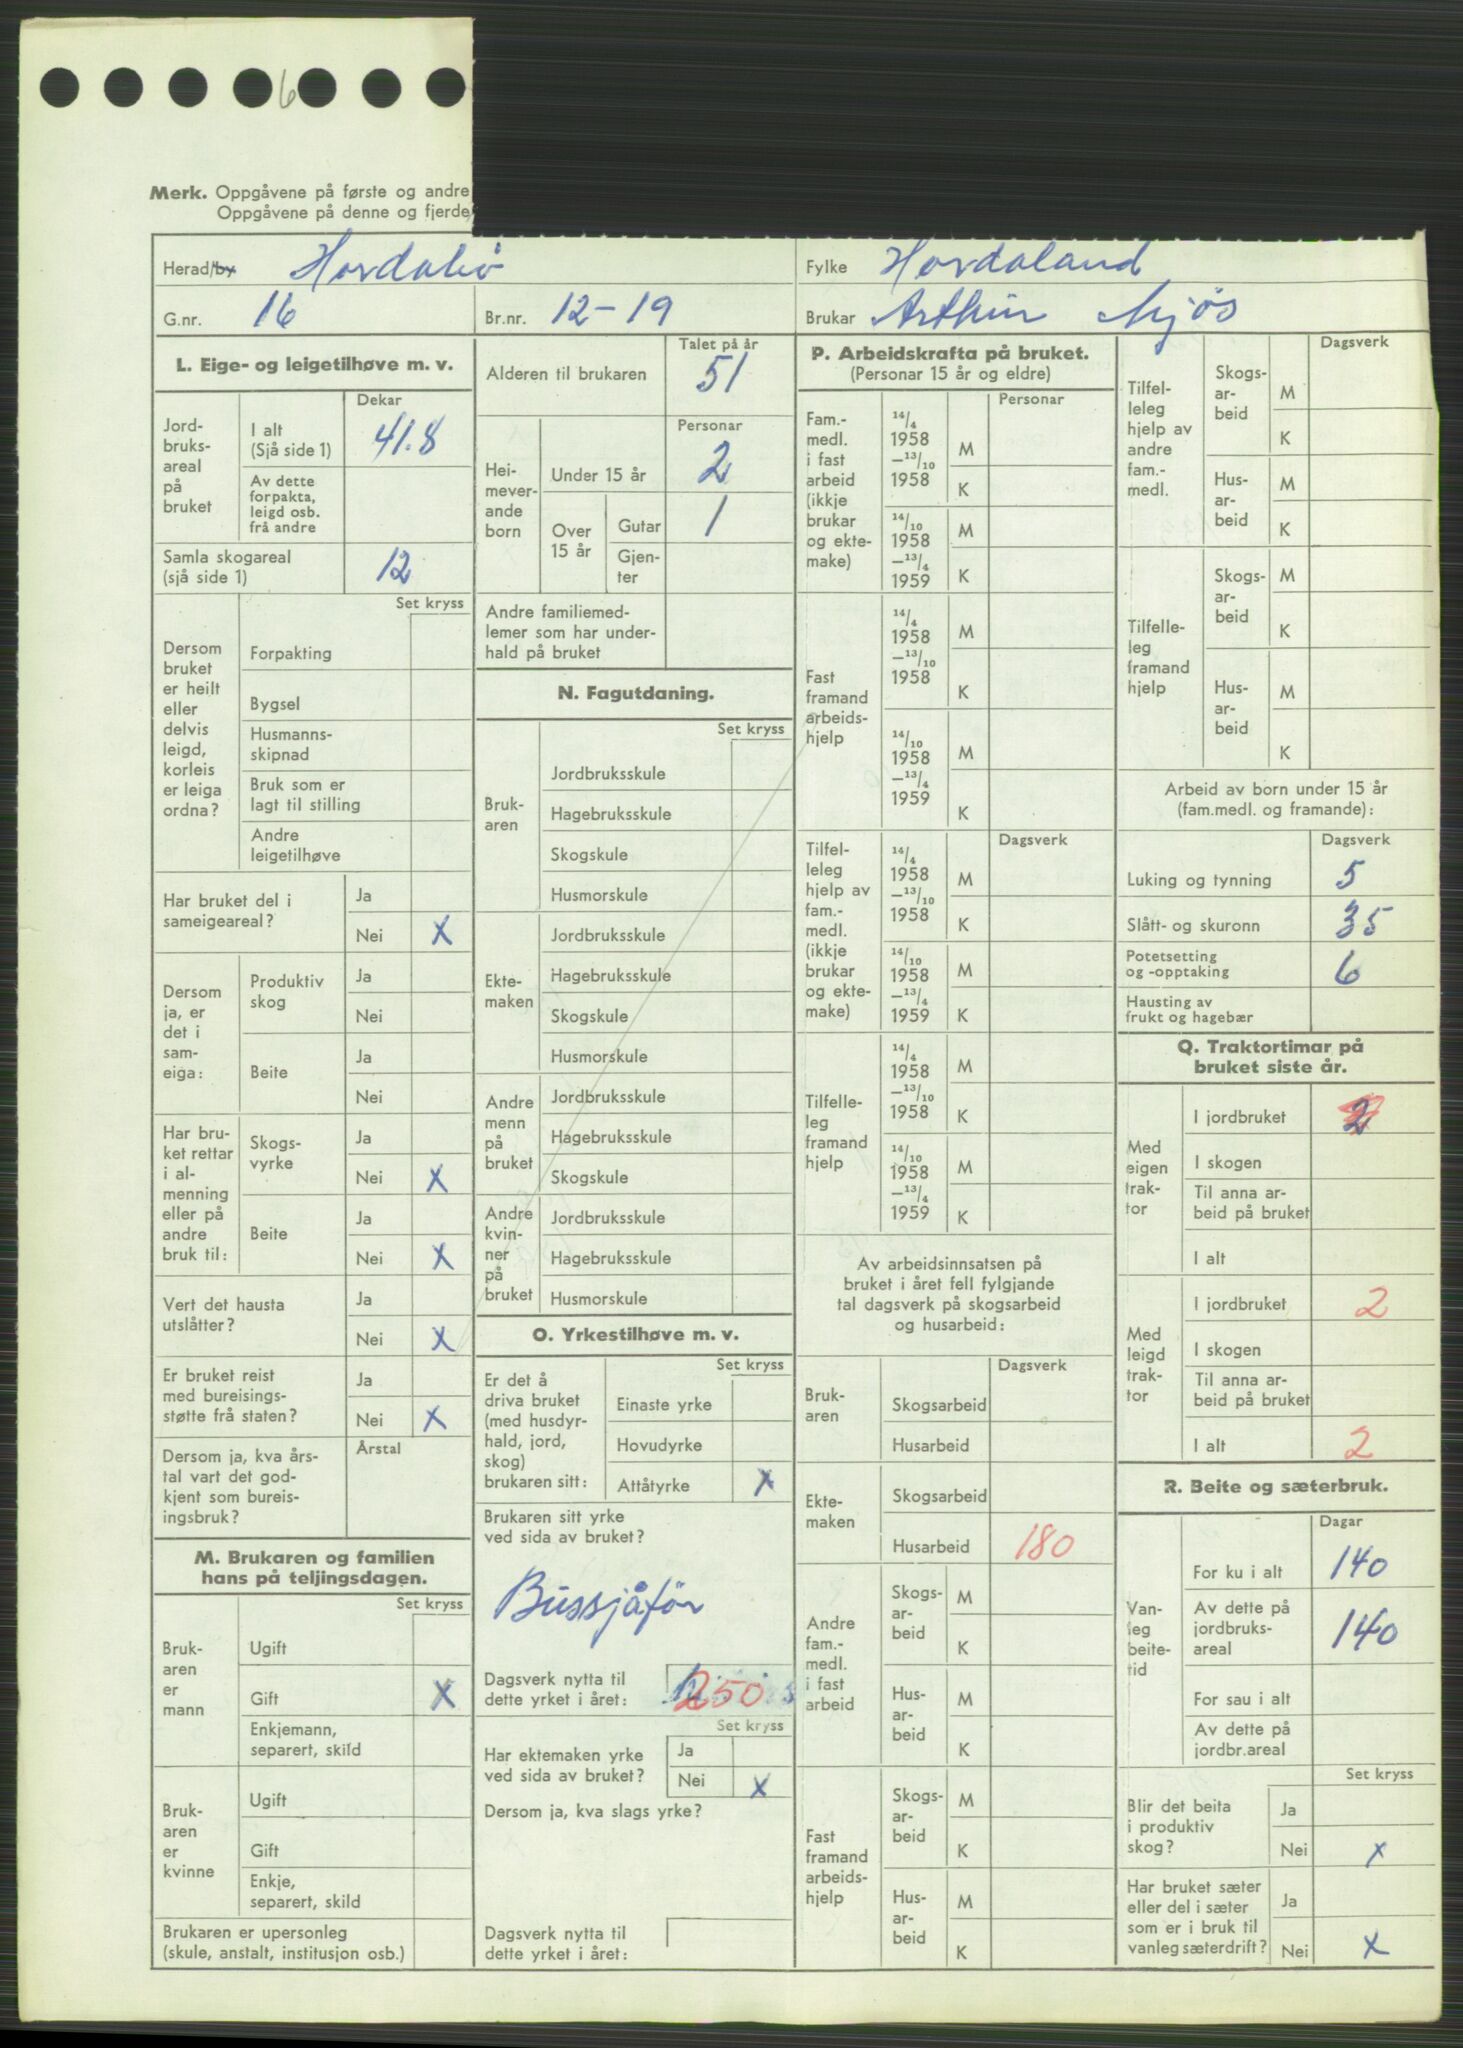 6
Merk. Oppgåvene på første og andre
Oppgåvene på denne og fjerde
Herad/by Hordabø
Fylke Hordaland
G.nr. 16
Br.nr. 12-19
Brukar Arthur Mjøs
L. Eige- og leigetilhøve m. v.
Dekar
Jord-
bruks-
areal
på
bruket
I alt
(Sjå side 1) 41.8
Av dette
forpakta,
leigd osb.
frå andre
Samla skogareal
(sjå side 1) 12
Set kryss
Dersom
bruket
er heilt
eller
delvis
leigd,
korleis
er leiga
ordna?
Forpakting
Bygsel
Husmanns-
skipnad
Bruk som er
lagt til stilling
Andre
leigetilhøve
Har bruket del i
sameigeareal?
Ja
Nei X
Dersom
ja, er
det i
sam-
eiga:
Produktiv
skog
Ja
Nei
Beite
Ja
Nei
Har bru-
ket rettar
i al-
menning
eller på
andre
bruk til:
Skogs-
vyrke
Ja
Nei X
Beite
Ja
Nei X
Vert det hausta
utslåtter?
Ja
Nei X
Er bruket reist
med bureisings-
støtte frå staten?
Ja
Nei X
Dersom ja, kva års-
tal vart det god-
kjent som bureis-
ingsbruk?
Årstal
M. Brukaren og familien
hans på teljingsdagen.
Set kryss
Bruk-
aren
er
mann
Ugift
Gift X
Enkjemann,
separert, skild
Bruk-
aren
er
kvinne
Ugift
Gift
Enkje,
separert, skild
Brukaren er upersonleg
(skule, anstalt, institusjon osb.)
Talet på år
Alderen til brukaren 51
Personar
Hei-
mever-
ande
born
Under 15 år 2
Over
15 år
Gutar 1
Gjen-
ter
Andre familiemed-
lemer som har under-
hald på bruket
N. Fagutdaning.
Set kryss
Bruk-
aren
Jordbruksskule
Hagebruksskule
Skogskule
Husmorskule
Ekte-
maken
Jordbruksskule
Hagebruksskule
Skogskule
Husmorskule
Andre
menn
på
bruket
Jordbruksskule
Hagebruksskule
Skogskule
Andre
kvin-
ner
på
bruket
Jordbruksskule
Hagebruksskule
Husmorskule
O. Yrkestilhøve m. v.
Set kryss
Er det å
driva bruket
(med husdyr-
hald, jord,
skog)
brukaren sitt:
Einaste yrke
Hovudyrke
Attåtyrke X
Brukaren sitt yrke
ved sida av bruket?
Bussjåfør
Dagsverk nytta til
dette yrket i året: 250
Set kryss
Har ektemaken yrke
ved sida av bruket?
Ja
Nei X
Dersom ja, kva slags yrke?
Dagsverk nytta til
dette yrket i året:
P. Arbeidskrafta på bruket.
(Personar 15 år og eldre)
Personar
Fam.-
medl.
i fast
arbeid
(ikkje
brukar
og ekte-
make)
14/4
1958
–13/10
1958
M
K
14/10
1958
–13/4
1959
M
K
Fast
framand
arbeids-
hjelp
14/4
1958
–13/10
1958
M
K
14/10
1958
–13/4
1959
M
K
Dagsverk
Tilfel-
leleg
hjelp av
fam.-
medl.
(ikkje
brukar
og ekte-
make)
14/4
1958
–13/10
1958
M
K
14/10
1958
–13/4
1959
M
K
Tilfelle-
leg
framand
hjelp
14/4
1958
–13/10
1958
M
K
14/10
1958
–13/4
1959
M
K
Av arbeidsinnsatsen på
bruket i året fell fylgjande
tal dagsverk på skogsarbeid
og husarbeid:
Dagsverk
Bruk-
aren
Skogsarbeid
Husarbeid
Ekte-
maken
Skogsarbeid
Husarbeid 180
Andre
fam.-
medl.
i fast
arbeid
Skogs-
ar-
beid
M
K
Hus-
ar-
beid
M
K
Fast
framand
arbeids-
hjelp
Skogs-
ar-
beid
M
K
Hus-
ar-
beid
M
K
Dagsverk
Tilfel-
leleg
hjelp av
andre
fam.-
medl.
Skogs-
ar-
beid
M
K
Hus-
ar-
beid
M
K
Tilfelle-
leg
framand
hjelp
Skogs-
ar-
beid
M
K
Hus-
ar-
beid
M
K
Arbeid av born under 15 år
(fam.medl. og framande):
Dagsverk
Luking og tynning 5
Slått- og skuronn 35
Potetsetting
og -opptaking 6
Hausting av
frukt og hagebær
Q. Traktortimar på
bruket siste år.
Med
eigen
trak-
tor
I jordbruket 2
I skogen
Til anna ar-
beid på bruket
I alt
Med
leigd
trak-
tor
I jordbruket 2
I skogen
Til anna ar-
beid på bruket
I alt 2
R. Beite og sæterbruk.
Dagar
Van-
leg
beite-
tid
For ku i alt 140
Av dette på
jordbruks-
areal 140
For sau i alt
Av dette på
jordbr.areal
Set kryss
Blir det beita
i produktiv
skog?
Ja
Nei X
Har bruket sæter
eller del i sæter
som er i bruk til
vanleg sæterdrift?
Ja
Nei X